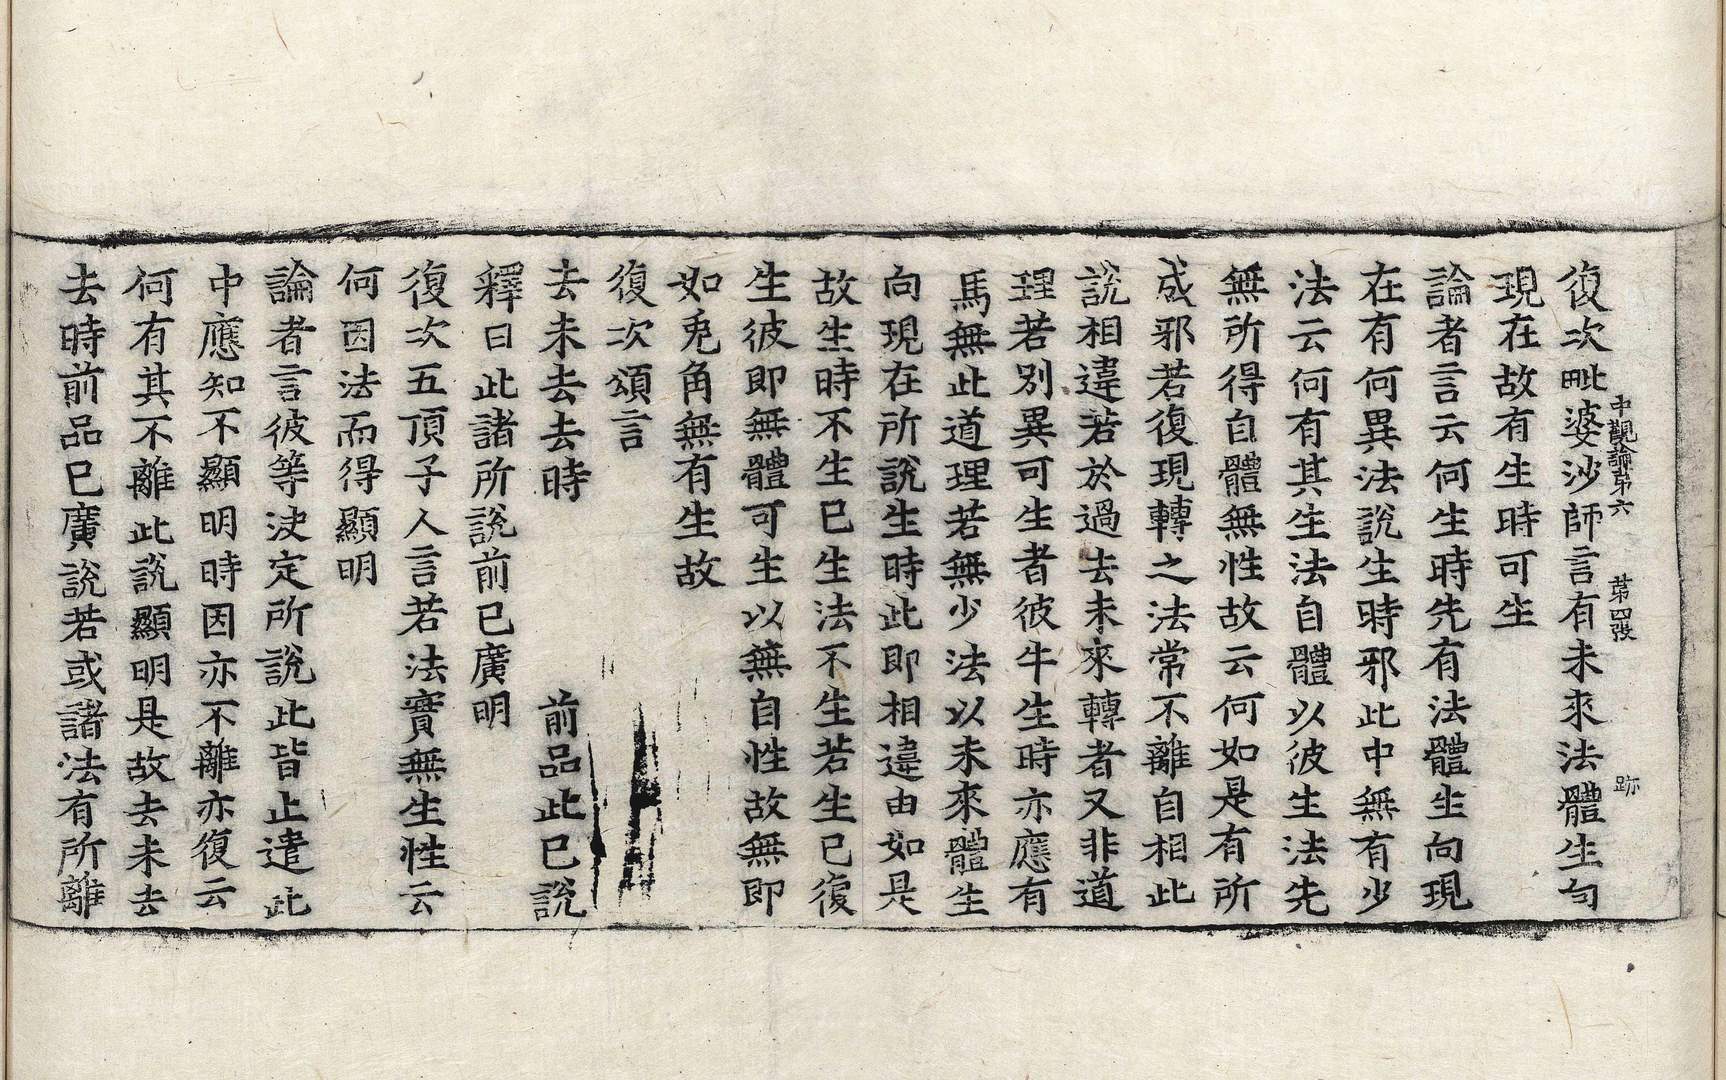 中觀論第六　第四張　跡
復次毗婆沙師言有未來法體生向
現在故有生時可生
論者言云何生時先有法體生向現
在有何異法說生時邪此中無有少
法云何有其生法自體以彼生法先
無所得自體無性故云何如是有所
成邪若復現轉之法常不離自相此
說相違若於過去未來轉者又非道
理若別異可生者彼牛生時亦應有
馬無此道理若無少法以未來體生
向現在所說生時此即相違由如是
故生時不生已生法不生若生已復
生彼即無體可生以無自性故無即
如兎角無有生故
復次頌言
去未去去時　前品此已說
釋曰此諸所說前已廣明
復次五頂子人言若法實無生性云
何因法而得顯明
論者言彼等決定所說此皆止遣此
中應知不顯明時因亦不離亦復云
何有其不離此說顯明是故去未去
去時前品已廣說若或諸法有所離